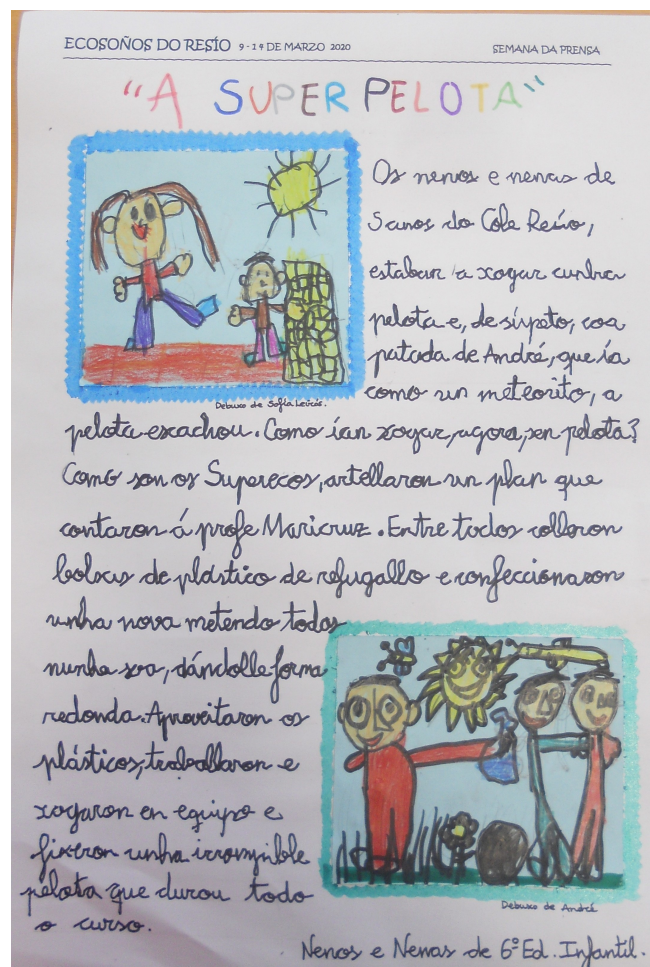 ECOSOÑOS DO RESÍO 9-14 DE MARZO 2020
SEMANA DA PRENSA
"A SUPER PELOTA"
Os nenos e nenas de
5 anos do Cole Resío,
estaban a xogar cunha
pelota e, de súpeto, coa
patada de André, que ía
como un meteorito, a
Debuxo de Sofía Leirós.
pelota escachou. Como ían xogar, agora, sen pelota?
Como son os Superecos, artellaron un plan que
contaron á profe Maricruz. Entre todos colleron
bolsas de plástico de refugallo e confeccionaron
unha nova metendo todas
nunha soa, dándolle forma
redonda. Aproveitaron os
plásticos, traballaron e
xogaron en equipo e
fixeron unha irrompible
pelota que durou todo
o curso.
Debuxo de André
Nenos e Nenas de 6º Ed. Infantil.